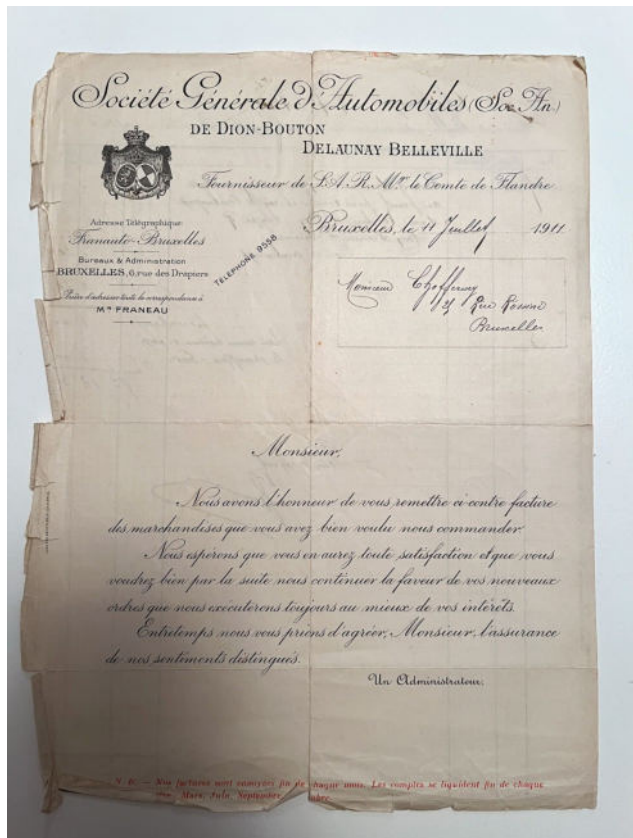 Société Générale d'Automobiles (Soc. An.)
DE DION-BOUTON
DELAUNAY BELLEVILLE
Fournisseur de S.A.R. Mgr le Comte de Flandre
Adresse Télégraphique
Franauto-Bruxelles
Bureaux & Administration
BRUXELLES, 6, rue des Drapiers
Prière d'adresser toute la correspondance à
Mr FRANEAU
TÉLÉPHONE 9558
Bruxelles, le 11 Juillet 1911
Monsieur
Rue
Bruxelles
Monsieur,
Nous avons l'honneur de vous remettre ci-contre facture
des marchandises que vous avez bien voulu nous commander.
Nous espérons que vous en aurez toute satisfaction et que vous
voudrez bien par la suite nous continuer la faveur de vos nouveaux
ordres que nous exécuterons toujours au mieux de vos intérêts.
Entretemps nous vous prions d'agréer, Monsieur, l'assurance
de nos sentiments distingués.
Un Administrateur,
N. B. — Nos factures sont envoyées fin de chaque mois. Les comptes se liquident fin de chaque
Mars, Juin, Septembre,